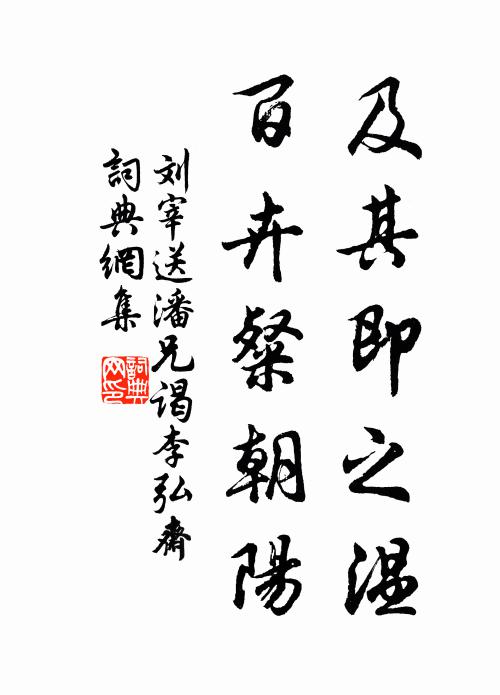 及其即之温
百卉粲朝陽
刘宰送潘兄谒李弘齋
詞典網集
詞典網印